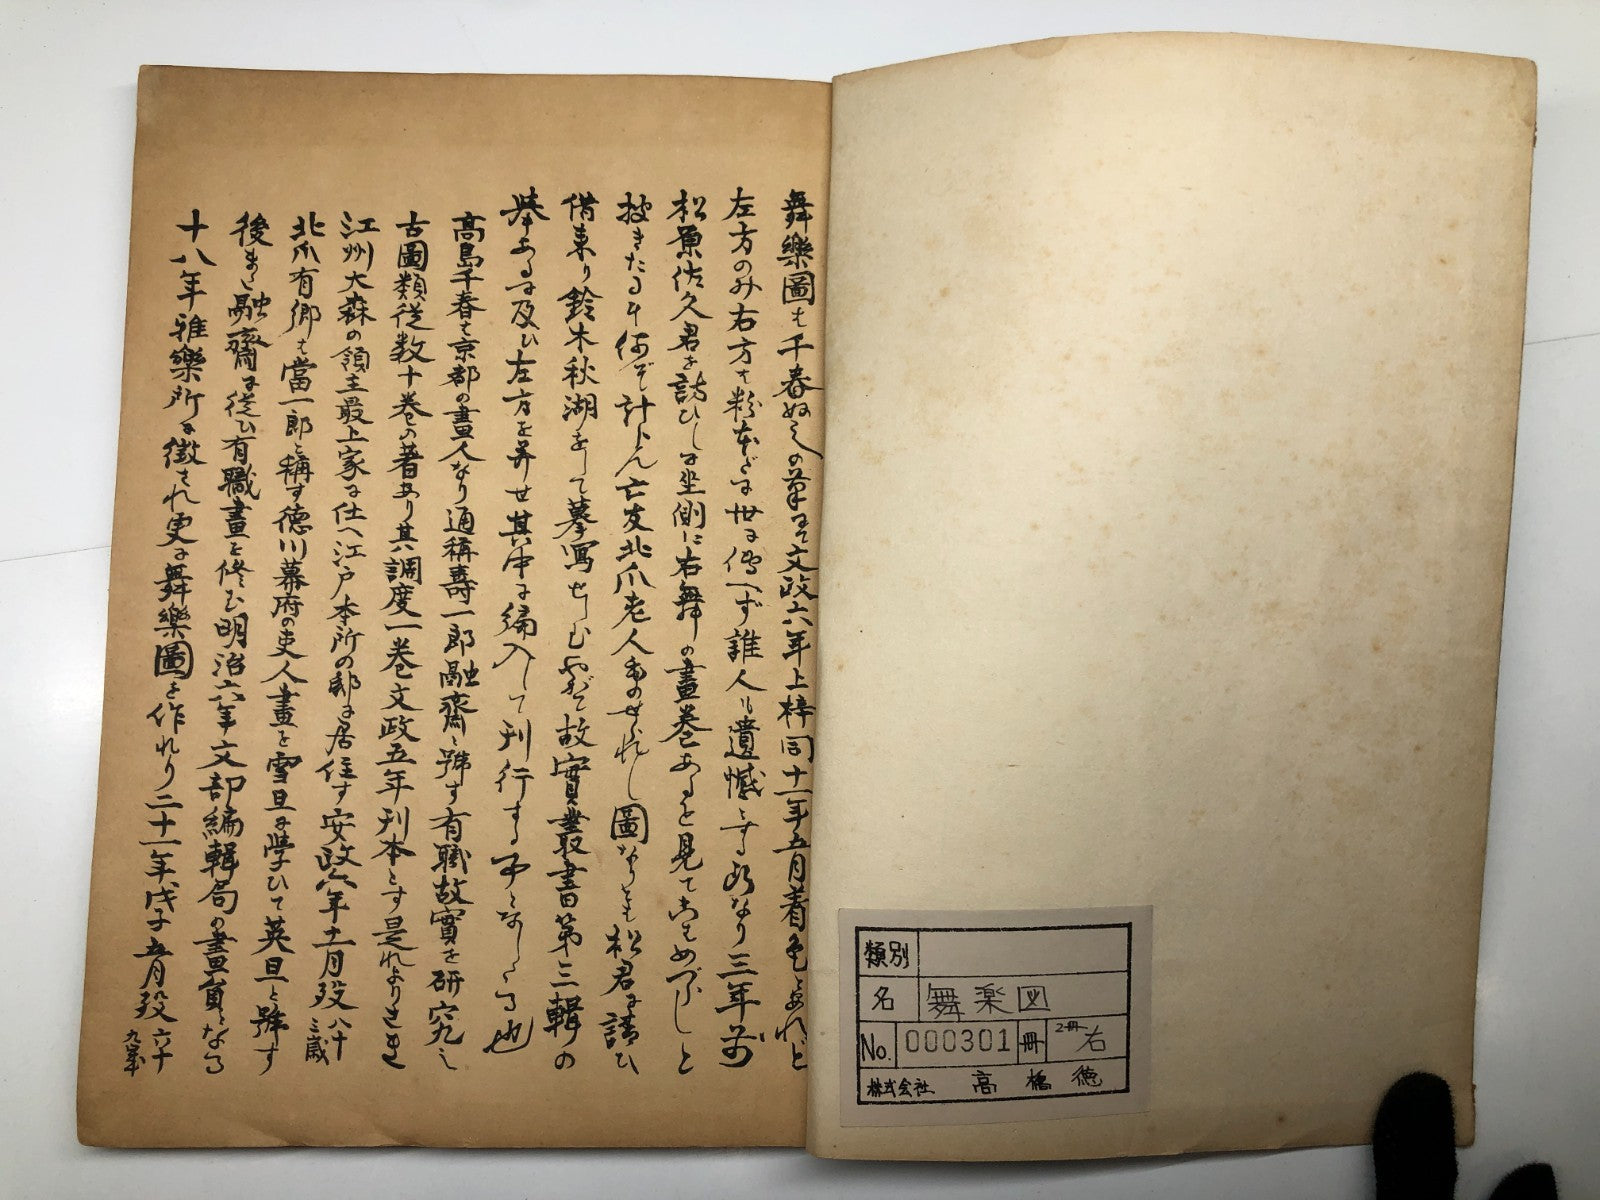 舞樂圖も千春ぬしの筆にて文政六年上梓同十一年五月着色とあれど
左方のみ右方も粉本だに世に傳へず誰人も遺憾とする所なり三年前
松原佐久君を訪ひしに坐側に右舞の畫巻あるを見てこはめづらしと
披きたるに何ぞ計らん亡友北爪老人ものせられし圖なりとも松君に請ひ
借来り鈴木秋湖をして摹寫せしむ故實叢書第三輯の
挙あるに及ひ左方を并せ其中に編入して刊行する事となしたる也
高島千春も京都の畫人なり通稱壽一郎融齋と號す有職故實を研究し
古圖類従数十巻の著あり其調度一巻文政五年刊本とす是れよりさき
江州大森の領主最上家に仕へ江戸本所の邸に居住す安政六年十一月歿 八十三歳
北爪有郷も當一郎と稱す徳川幕府の吏人畫を雪旦に學ひて英旦と號す
後また融齋に従ひ有職畫を修む明治六年文部編輯局の畫員となる
十八年雅樂所に徴され更に舞樂圖を作れり二十一年戊子五月歿 六十九年
類別
名 舞楽図
No. 000301 冊 2冊 右
株式会社 高橋徳